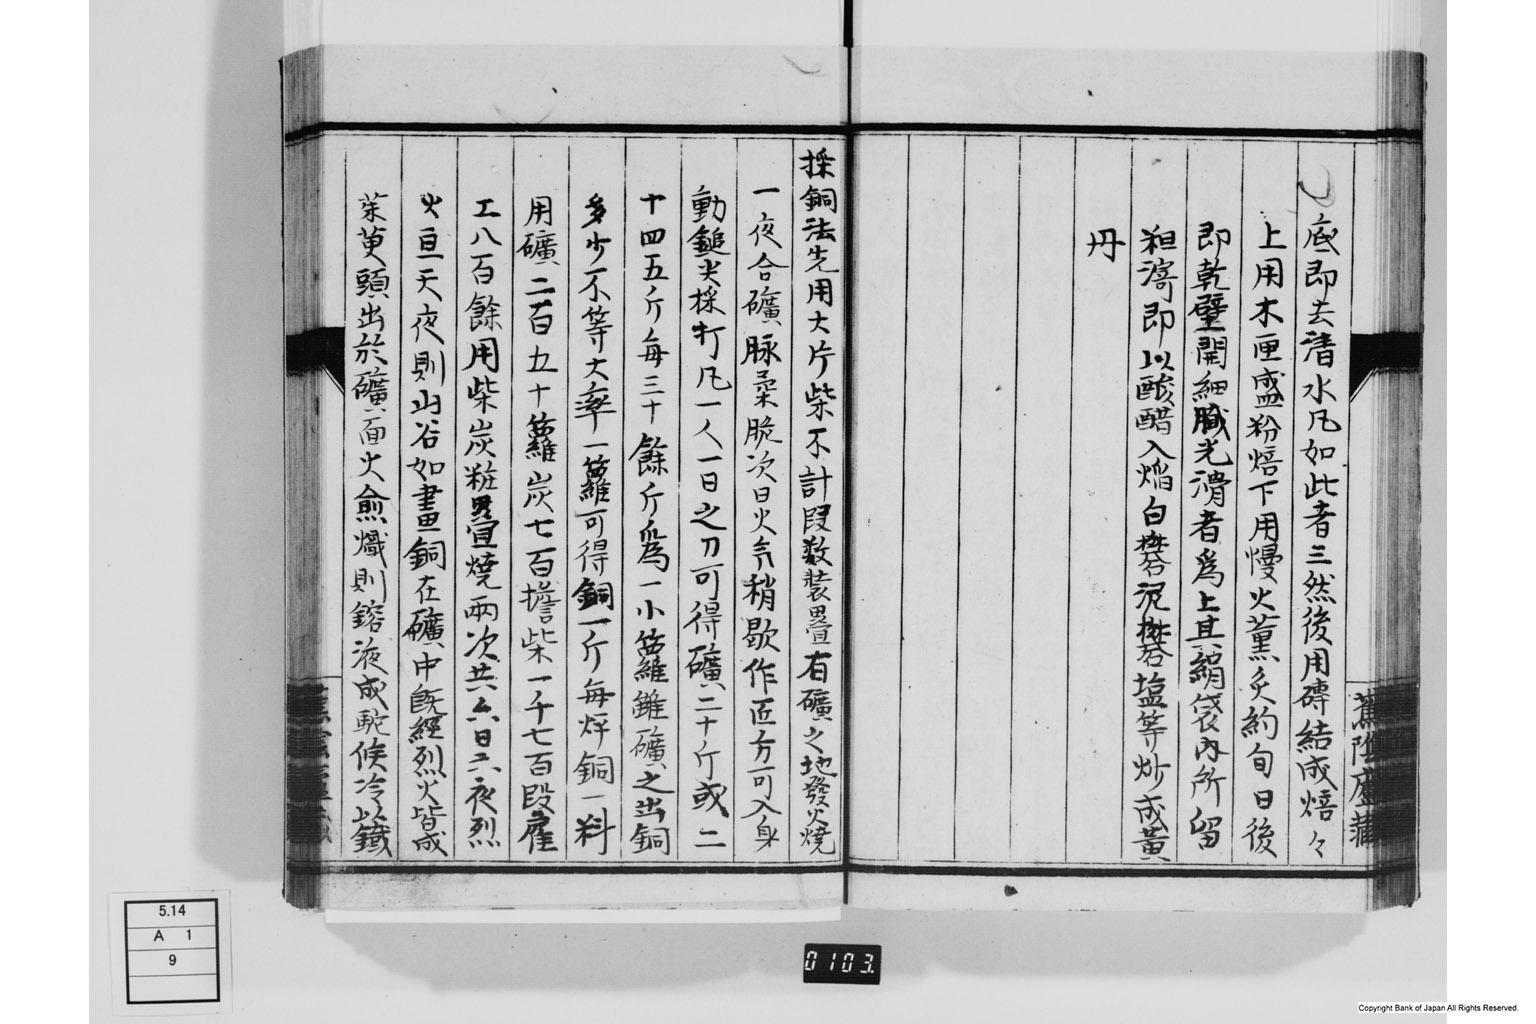 底即去清水凡如此者三然後用磚結成焙々
上用木匣盛粉焙下用慢火薰炙約旬日後
即乾壁開細膩光滑者爲上其絹袋內所留
粗滓即以酸醋入焰白礬泥礬塩等炒成黃
丹
採銅法先用大片柴不計段数裝疊有礦之地發火燒
一夜令礦脉柔脆次日火氣稍歇作匠方可入身
動鎚尖採打凡一人一日之力可得礦二十斤或二
十四五斤每三十餘斤爲一小籮雖礦之出銅
多少不等大率一籮可得銅一斤每烊銅一料
用礦二百五十籮炭七百擔柴一千七百段雇
工八百餘用柴炭粧疊燒兩次共六日六夜烈
火亘天夜則山谷如晝銅在礦中既經烈火皆成
茱萸頭出於礦面火愈熾則鎔液成駝候冷以鐵
蕉陰廬藏
5.14
A 1
9
0103.
Copyright Bank of Japan All Rights Reserved.